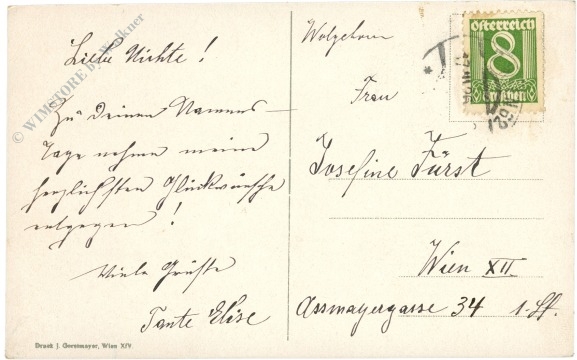 Liebe Nichte!
Zu deinem Namens-
Tage nehme meine
herzlichsten Glückwünsche
entgegen!
Viele Grüße
Tante Elise
Wohlgeboren
Frau
Josefine Fürst
Wien XII
Assmayergasse 34 1. St.
Österreich
8
Groschen
Druck J. Gerstmayer, Wien X/9.
© WIMSTORE by Walkner